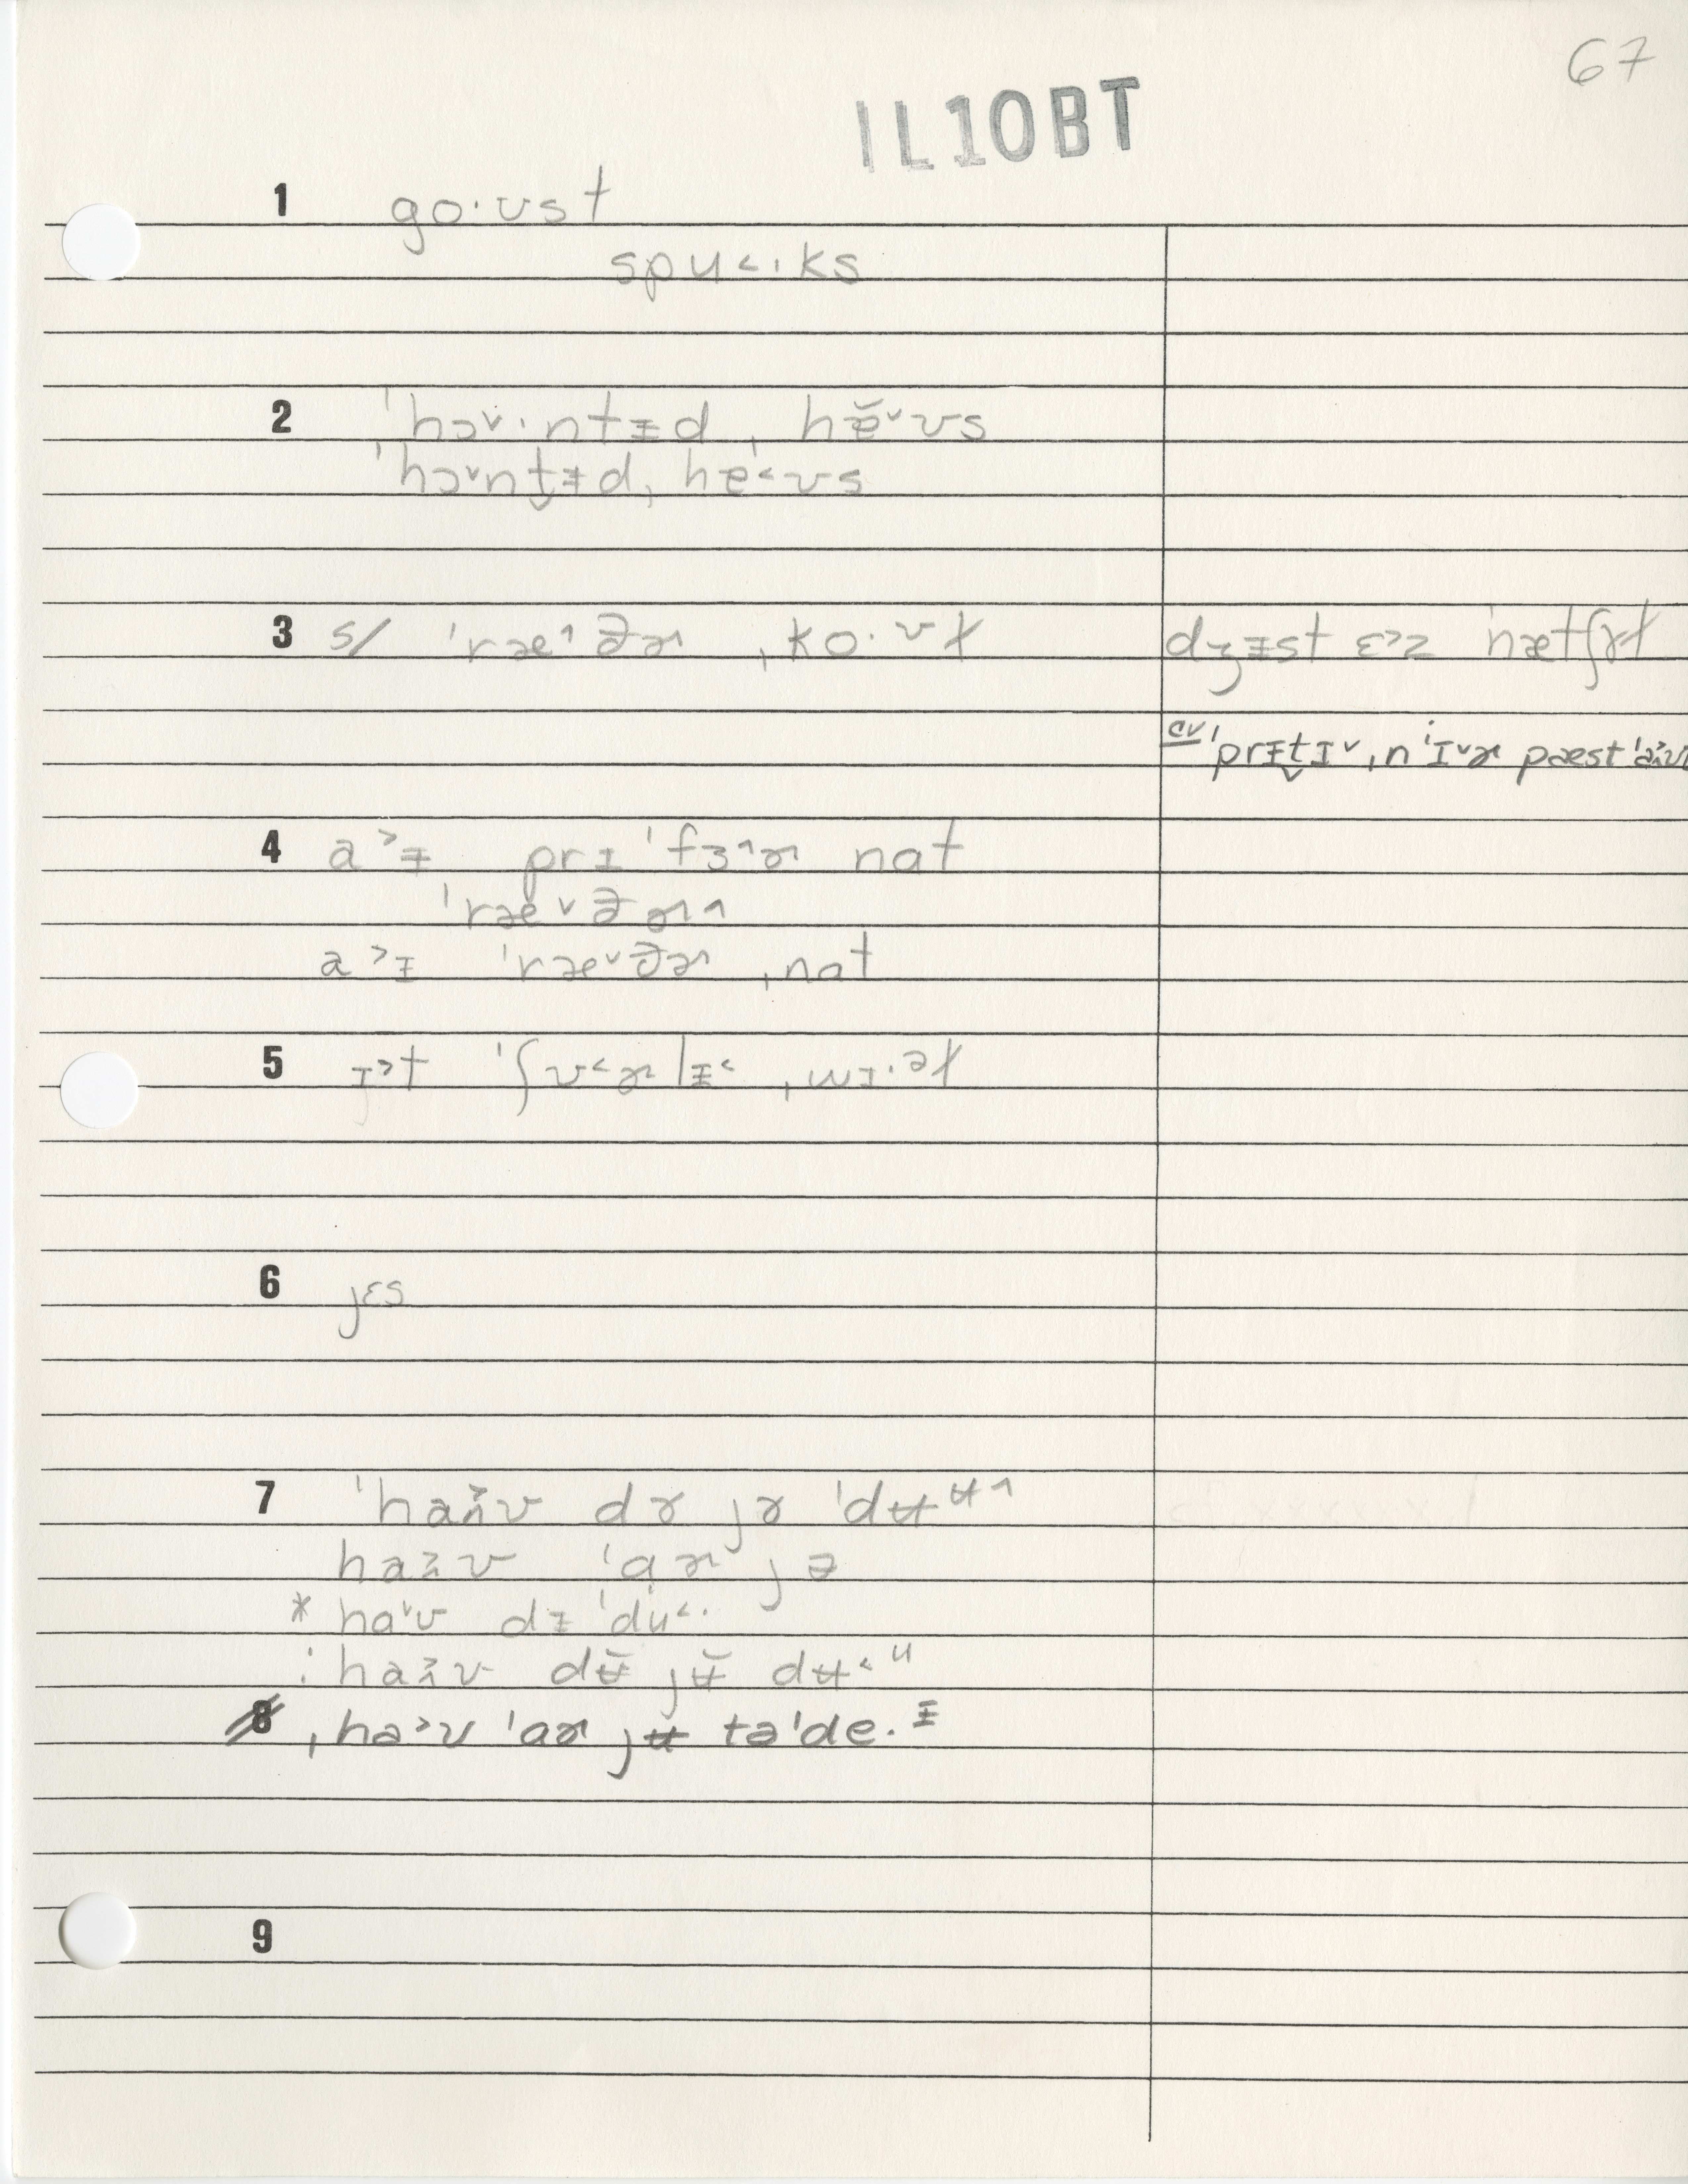 67
IL10BT
1 go·ʊst
spu˂·ks
2 ˈhɔ˅·ntɪ̵d ˌhæ̆˅ʊs
ˈhɔ˅nt̬ɪ̵d ˌhæ˂ʊs
3 s/ ˈræ˄ðɚ ˌko·ʊɫ dʒɪ̵st ɛ˃z ˈnætʃɤɫ
cv ˈprɪ̵t̬ɪ˅ ˌnˈɪ˅ɚ pæst
4 a˃ɪ̵ prɪˈfɜ˄ɚ nat
ˈræ˅ðɚ˄
a˃ɪ̵ ˈræ˅ðɚ ˌnat
5 ɪ˃t ˈʃʊ˂ɚlɪ̵˂ ˌwɪ·əɫ
6 jɛs
7 ˈha˃˄ʊ dɤ jɤ ˈdʉʉ˄
ha˃˄ʊ ˈɑɚ jə
* ha˅ʊ dɪ̵ ˈdu˂·
: ha˃˄ʊ dʉ̆ jʉ̆ dʉ˂u
8 ˌha˃ʊ ˈɑɚ jʉ təˈde·ɪ̵
9